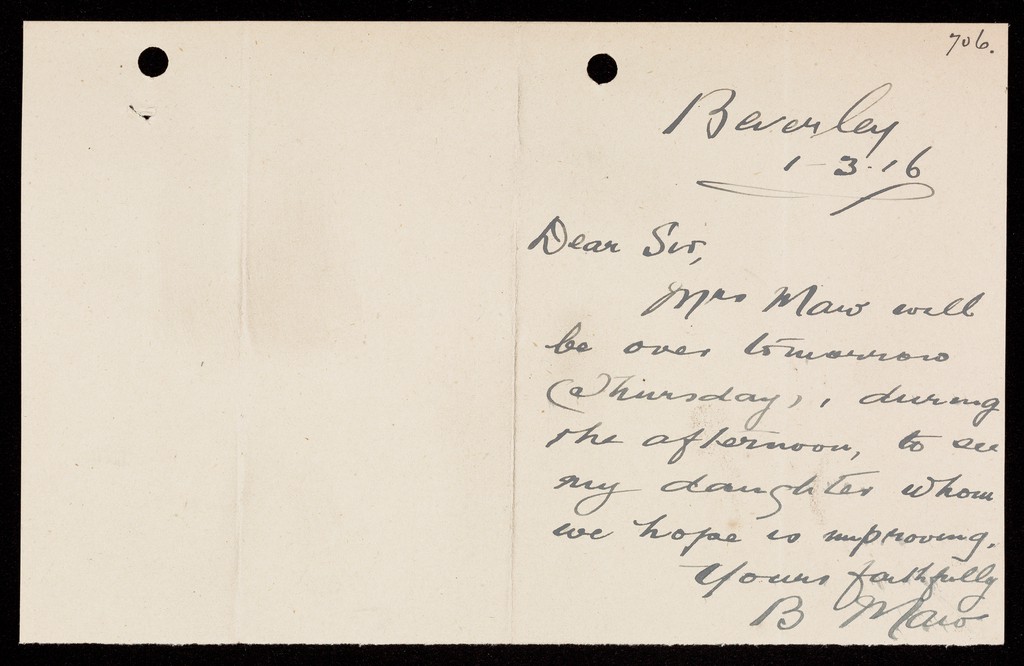 706.
Beverley
1-3-16
Dear Sir,
Mrs Maw will
be over tomorrow
(Thursday), during
the afternoon, to see
my daughter whom
we hope is improving.
Yours faithfully
B Maw